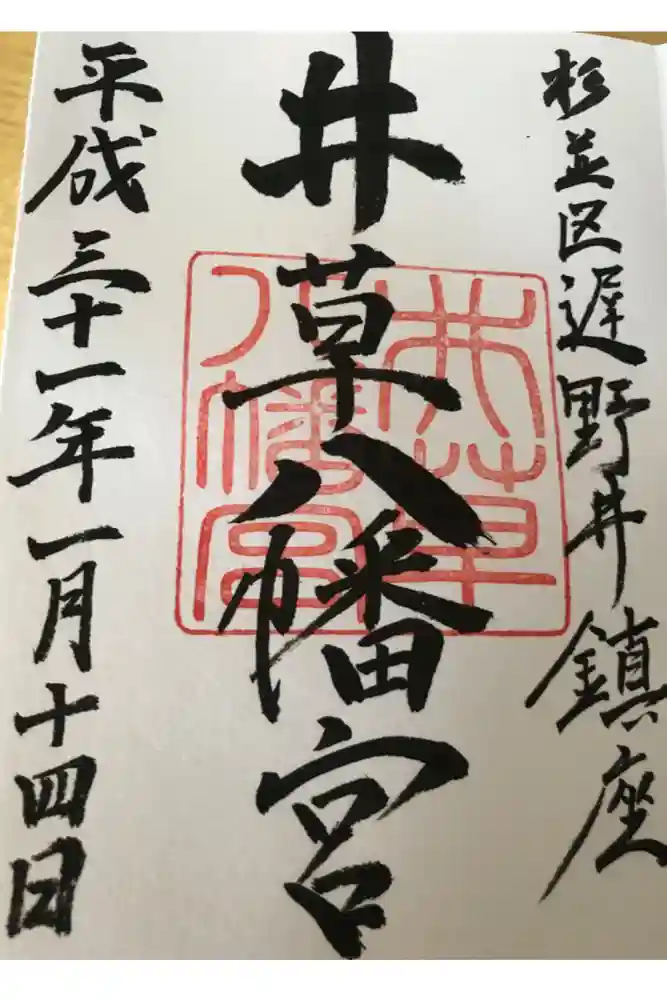 杉並区遅野井鎮座
井草八幡宮
井草
八幡宮
平成三十一年一月十四日